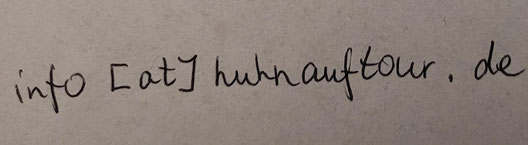 info [at] huhnauftour. de